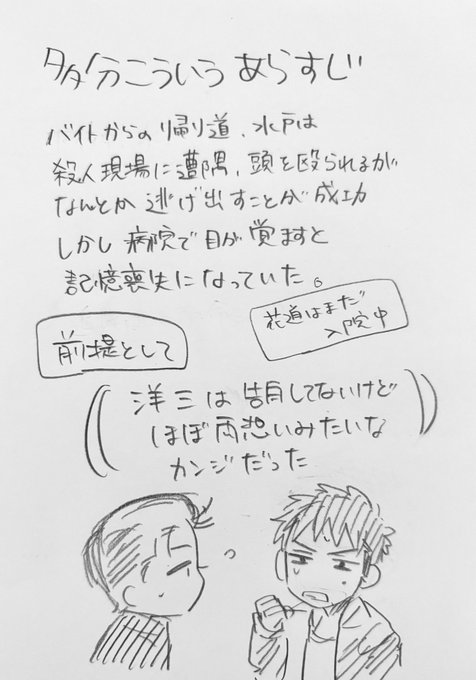 多分こういうあらすじ
バイトからの帰り道、水戸は
殺人現場に遭遇、頭を殴られるが
なんとか逃げ出すことが成功
しかし病院で目が覚ますと
記憶喪失になっていた。
花道はまだ
入院中
前提として
洋三は告白してないけど
ほぼ両想いみたいな
カンジだった